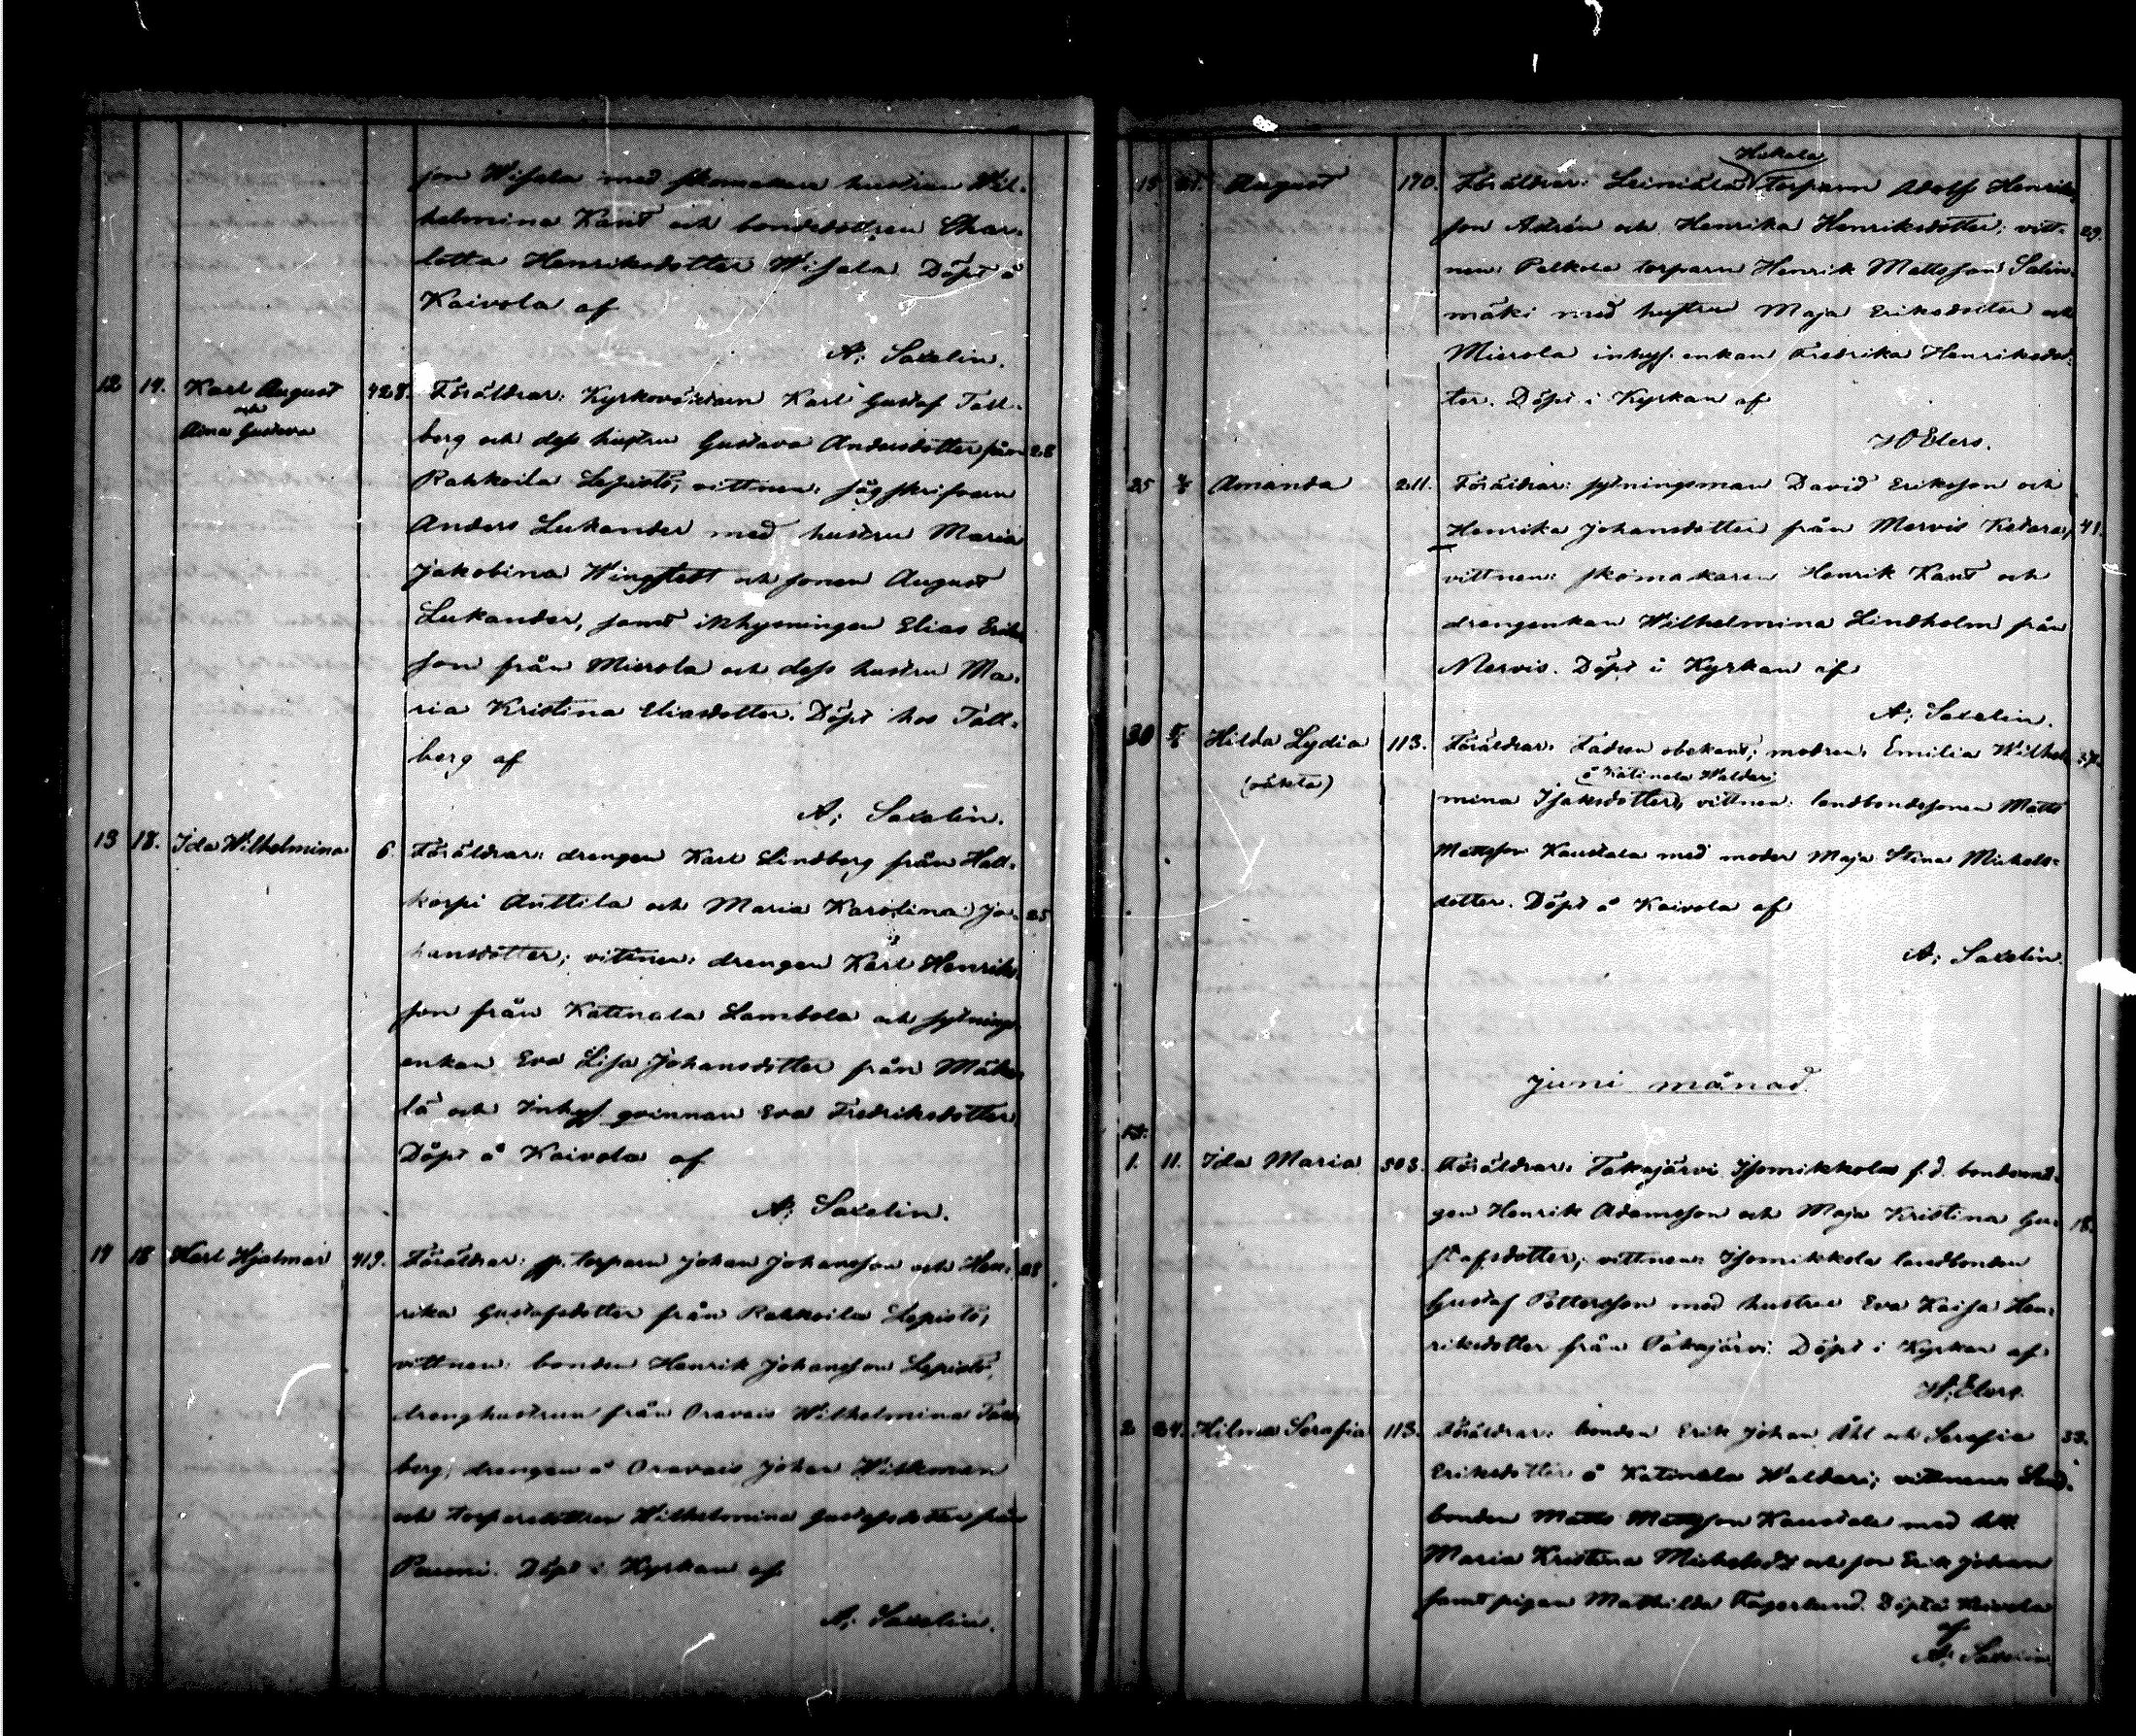 son Wisala med skomakare hustrun Wil-
helmina Kant och bondedottren Char-
lotta Henriksdotter Wisala. Döpt å
Kaivola af
A; Saxelin.
12 14. Karl August 428. Föräldrar: Kyrkoväktaren Karl Gustaf Tall-
och
Aina Gustava
berg och dess hustru Gustava Andersdotter från 28
Rahkoila Lepistö; vittnen: sågskrifvaren
Anders Lukander med hustru Maria
Jakobina Wingstedt och sonen August
Lukander, samt inhysningen Elias Eriks
son från Mierola och dess hustru Ma-
ria Kristina Eliasdotter. Döpt hos Tall-
berg af
A; Saxelin.
13 18. Ida Wilhelmina 6. Föräldrar: drengen Karl Lindberg från Hall-
korpi Anttila och Maria Karolina Jo- 25
hansdotter; vittnen: drengen Karl Henriks
son från Katinala Lambola och sytnings
enkan Eva Lisa Johansdotter från Mäke
lä och Inhys. qvinnan Eva Fredriksdotter
Döpt å Kaivola af
A; Saxelin.
14 18 Karl Hjalmar 419. Föräldrar: torparn Johan Johansson och Hen- 28
rika Gustafsdotter från Rahkoila Lepistö;
vittnen: bonden Henrik Johansson Lepistö,
drenghustrun från Oravais Wilhelmina
berg; drengen å Oravais Johan Wikman
och torparedottren Wilhelmina Gustafsdotter från
Döpt i Kyrkan af
A; Saxelin.
15 21. August 170. Föräldrar: Leiniälä Hakala torparn Adolf Henriks
son Adrén och Henrika Henriksdotter; vitt- 29.
nen: Pelkola torparn Henrik Mattsson Salin-
mäki med hustru Maja Eriksdotter och
Mierola inhys. enkan Fredrika Henriksdot-
ter. Döpt i Kyrkan af
Elers.
25 Amanda 211. Föräldrar: sytningsman David Eriksson och
Henrika Johansdotter från Mervis Ketara; 41.
vittnen: skomakaren Henrik Kant och
drengenkan Wilhelmina Lindholm från
Mervis. Döpt i Kyrkan af
A; Saxelin.
30 Hilda Lydia 113. Föräldrar: Fadren obekant; modren: Emilia Wilhel- 27.
(oäkta)
å Katinala Waldari
mina Isaksdotter; vittnen: landbondesonen Matts
Mattsson Kaustala med moder Maja Stina Mickels-
dotter. Döpt å Kaivola af
A; Saxelin.
Juni månad.
1. 11. Ida Maria 503. Föräldrar: Takajärvi Isomikkola f. d. bondemå-
gen Henrik Adamsson och Maja Kristina Gu- 18.
stafsdotter; vittnen: Isomikkola landbonden
Gustaf Pettersson med hustru Eva Kaisa Hen-
riksdotter från Takajärvi. Döpt i Kyrkan af
Elers.
2 24. Hilma Serafia 113. Föräldrar: bonden Erik Johan Åhl och Serafia 33.
Eriksdotter å Katinala Waldari; vittnen: Land-
bonden Matts Mattsson Kaustala med
Maria Kristina Mickelsdr och son Erik Johan
samt pigan Mathilda Fagerlund. Döpt å Kaivola
af
A; Saxelin